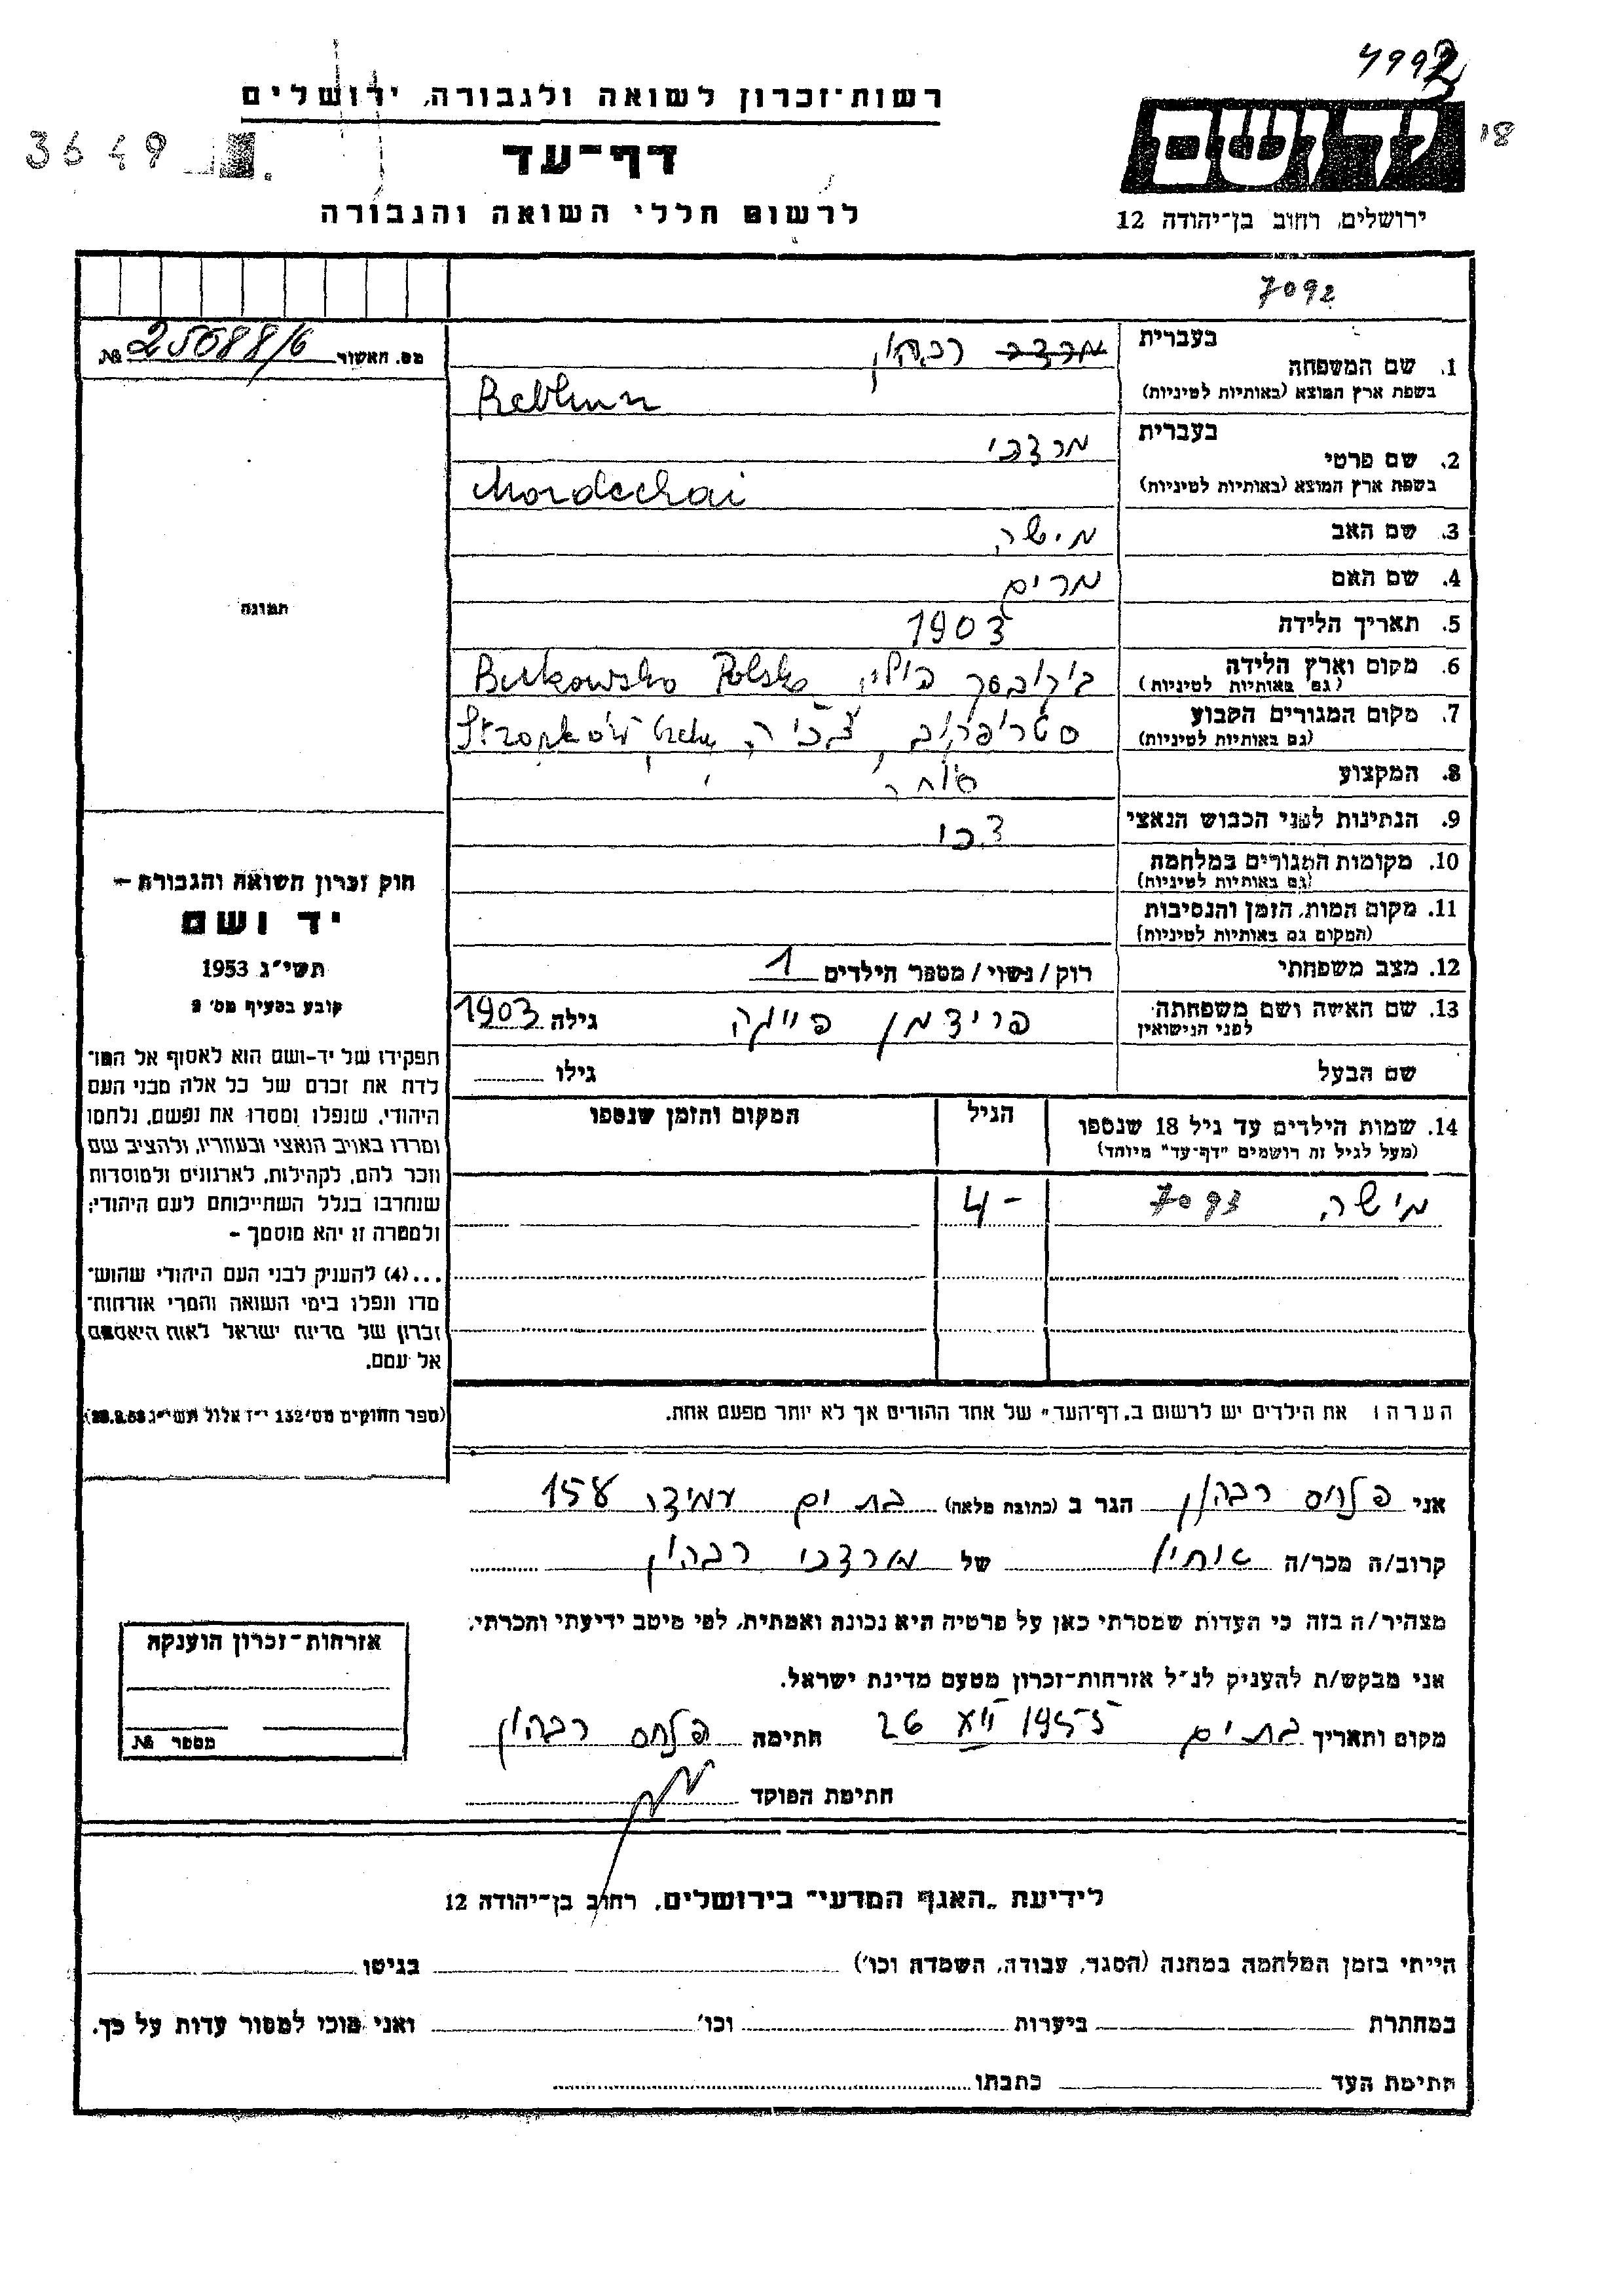 4992
רשות־זכרון לשואה ולגבורה, ירושלים
3649
דף־עד
לרשום חללי השואה והגבורה
יד ושם
18
ירושלים, רחוב בן־יהודה 12
7092
מס. האשור 25688/6 №
בעברית
1. שם המשפחה רבהון
בשפת ארץ המוצא (באותיות לטיניות) Rebhun
בעברית
2. שם פרטי מרדכי
בשפת ארץ המוצא (באותיות לטיניות) Mordechai
3. שם האב מישה
4. שם האם מרים
5. תאריך הלידה 1903
6. מקום וארץ הלידה Bukowsko Polska
(גם באותיות לטיניות)
7. מקום המגורים הקבוע
(גם באותיות לטיניות)
8. המקצוע סוחר
9. הנתינות לפני הכבוש הנאצי צכי
10. מקומות המגורים במלחמה
(גם באותיות לטיניות)
11. מקום המות, הזמן והנסיבות
(המקום גם באותיות לטיניות)
12. מצב משפחתי רוק/נשוי/מספר הילדים 1
13. שם האשה ושם משפחתה פרידמן פייגה גילה 1903
לפני הנישואין
שם הבעל גילו
תמונה
חוק זכרון השואה והגבורה –
יד ושם
תשי"ג 1953
קובע בסעיף מס' 2
תפקידו של יד-ושם הוא לאסוף אל המו־
לדת את זכרם של כל אלה מבני העם
היהודי, שנפלו ומסרו את נפשם, נלחמו
ומרדו באויב הנאצי ובעוזריו, ולהציב שם
וזכר להם, לקהילות, לארגונים ולמוסדות
שנחרבו בגלל השתייכותם לעם היהודי;
ולמטרה זו יהא מוסמך –
...(4) להעניק לבני העם היהודי שהוש־
מדו ונפלו בימי השואה והמרי אזרחות־
זכרון של מדינת ישראל לאות היאספם
אל עמם.
(ספר החוקים מס' 132 י"ז אלול תשי"ג 28.8.53)
14. שמות הילדים עד גיל 18 שנספו הגיל המקום והזמן שנספו
(מעל לגיל זה רושמים "דף־עד" מיוחד)
מישה 7093 4 -
הערה: את הילדים יש לרשום ב"דף־העד" של אחד ההורים אך לא יותר מפעם אחת.
אני פנחס רבהון הגר ב (כתובת מלאה) בת ים עמידר 158
קרוב/ה מכר/ה של מרדכי רבהון
מצהיר/ה בזה כי העדות שמסרתי כאן על פרטיה היא נכונה ואמתית, לפי מיטב ידיעתי והכרתי.
אני מבקש/ת להעניק לנ"ל אזרחות־זכרון מטעם מדינת ישראל.
מקום ותאריך בת ים 26 1955 חתימה פנחס רבהון
חתימת הפוקד
אזרחות־זכרון הוענקה
מספר №
לידיעת "האגף המדעי" בירושלים, רחוב בן־יהודה 12
הייתי בזמן המלחמה במחנה (הסגר, עבודה, השמדה וכו') בגיטו
במחתרת ביערות וכו' ואני מוכן למסור עדות על כך.
חתימת העד כתבתו